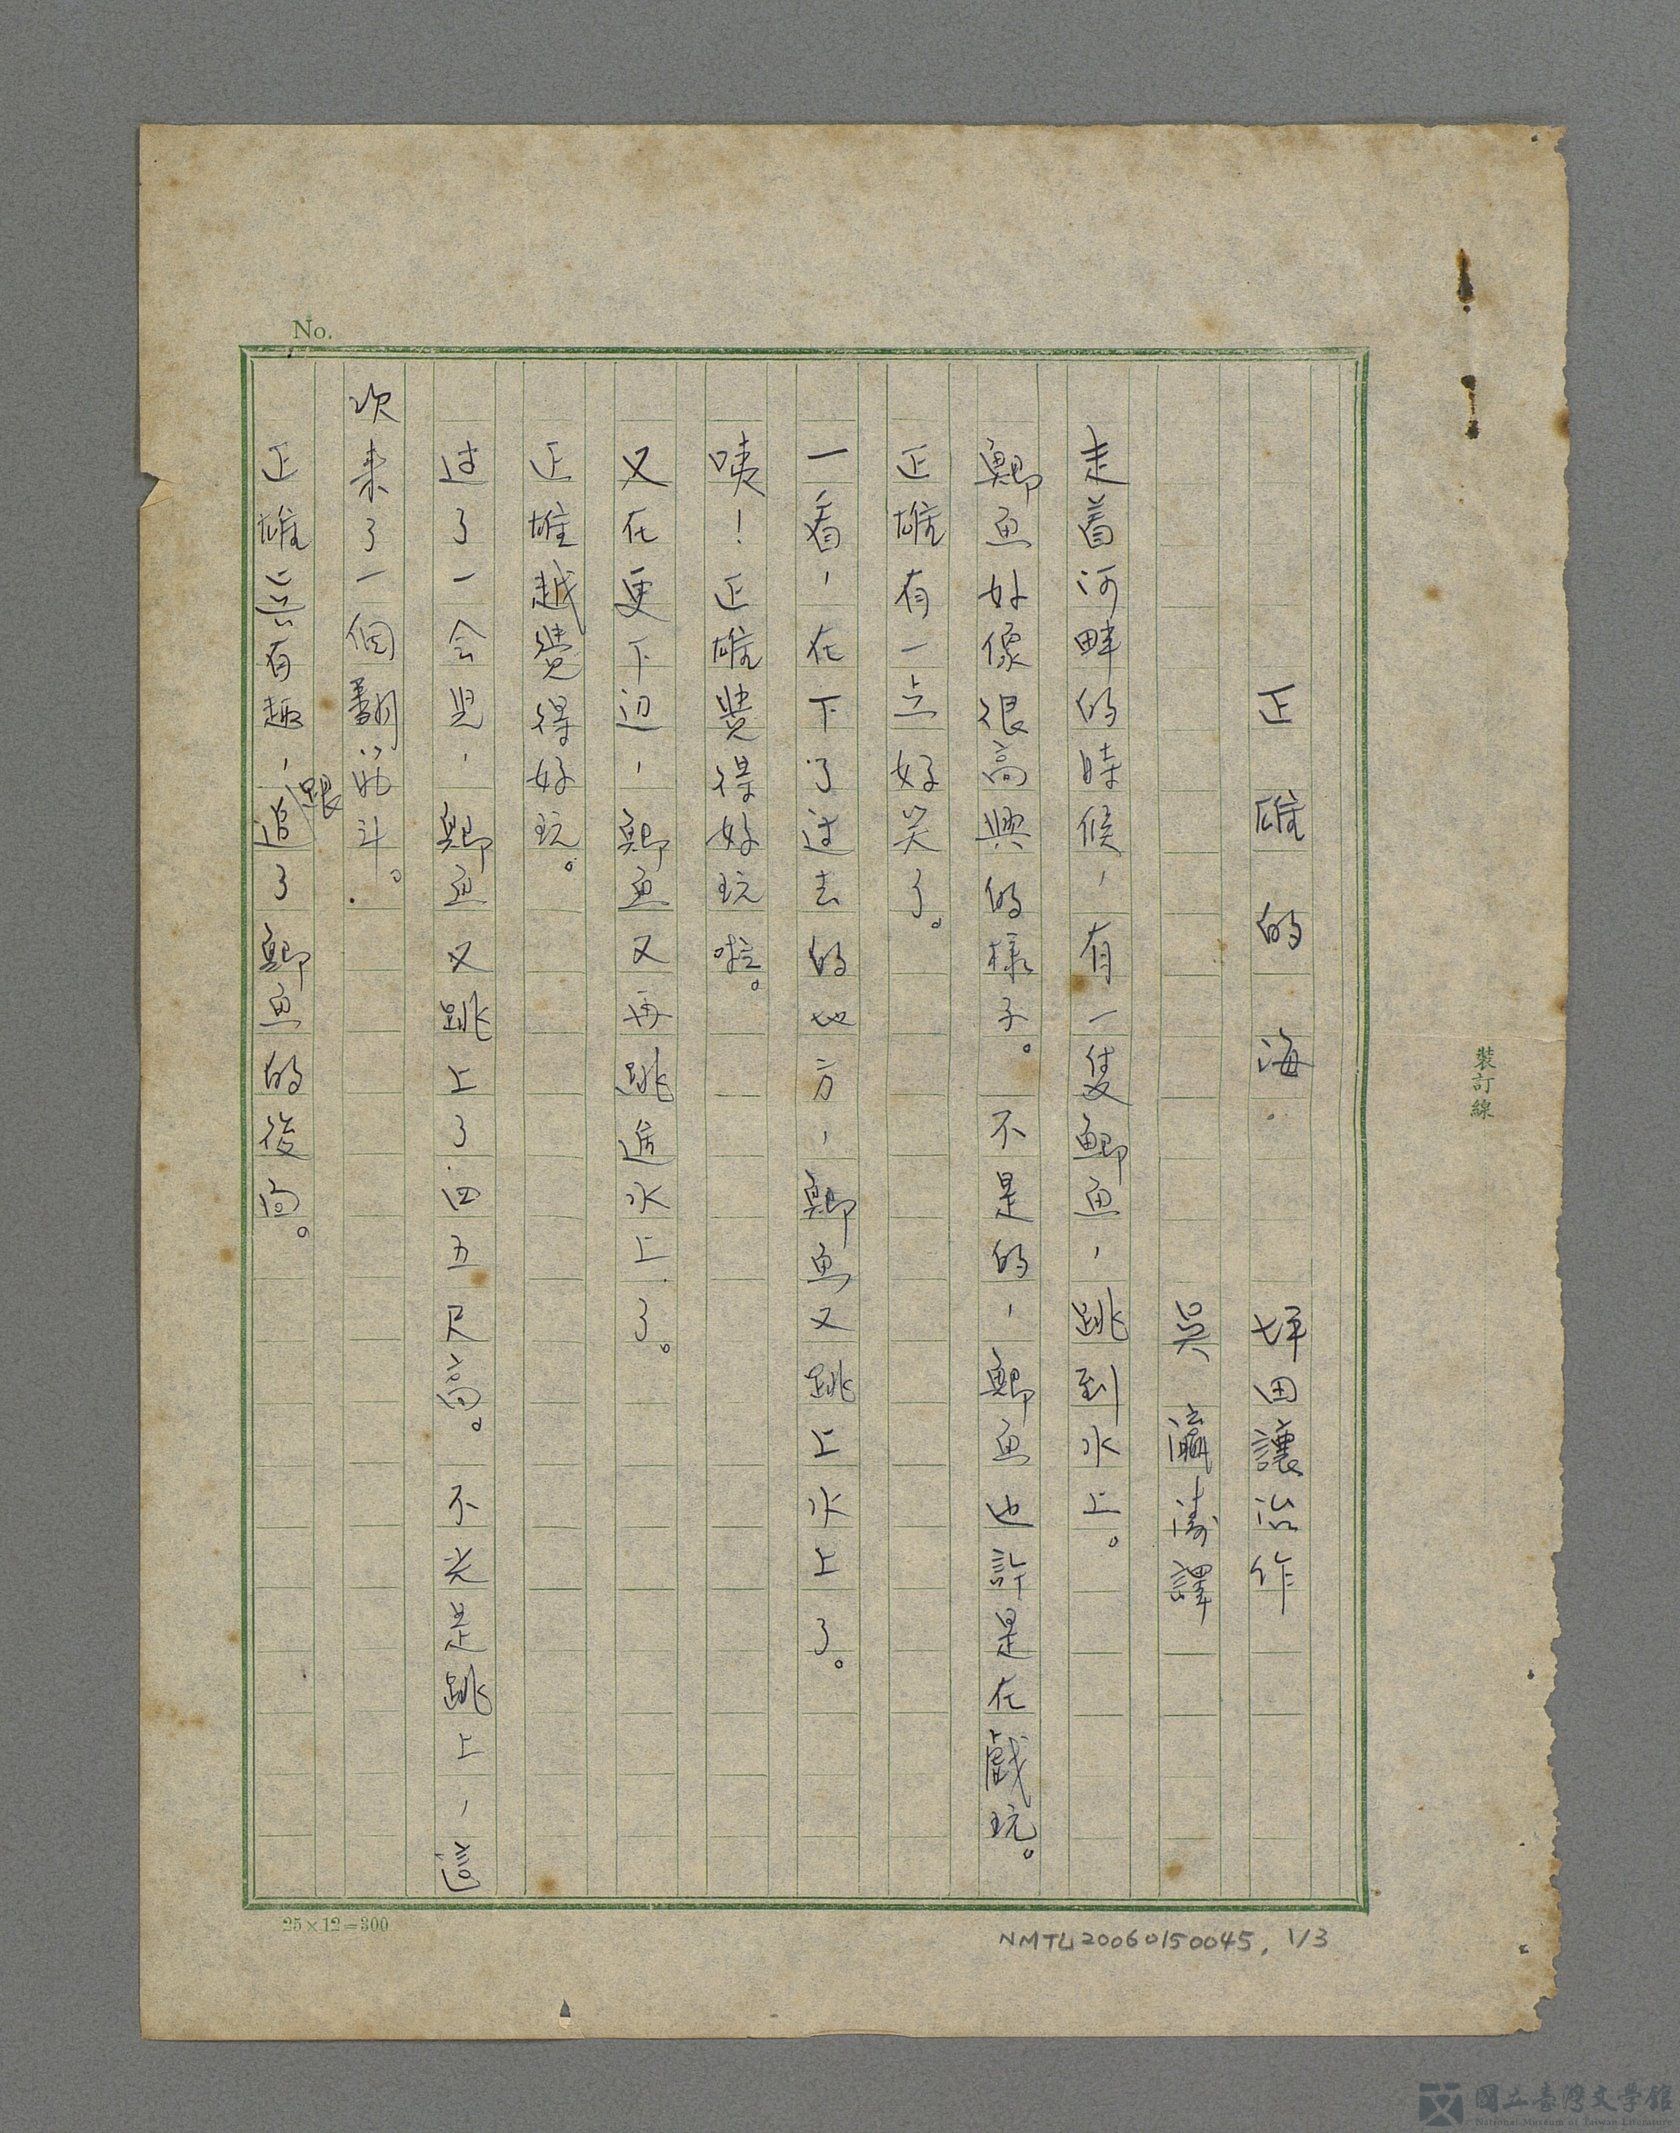 No.
正雄的海　坪田讓治作
吳瀛濤譯
走着河畔的時候，有一隻鯽魚，跳到水上。
鯽魚好像很高興的樣子。不是的，鯽魚也許是在戲玩。
正雄有一点好笑了。
一看，在下了过去的地方，鯽魚又跳上水上了。
咦！正雄覺得好玩啦。
又在更下边，鯽魚又再跳進水上了。
正雄越覺得好玩。
过了一会児，鯽魚又跳上了四五尺高。不光是跳上，這
次来了一個翻筋斗。
正雄有趣，跟追了鯽魚的後面。
裝訂線
25×12=300
NMTL20060150045, 1/3
國立臺灣文學館
National Museum of Taiwan Literature